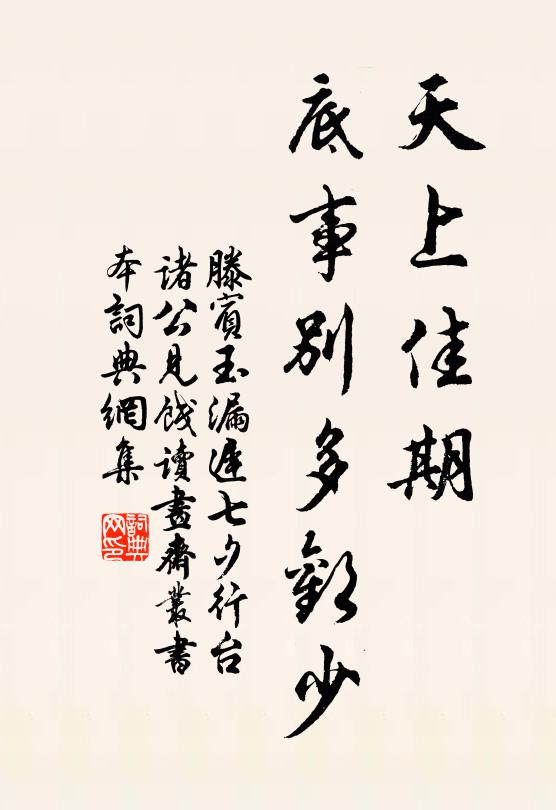 天上佳期
底事別多歡少
滕賓玉漏遲七夕行台
諸公見餞讀畫齋叢書
本詞典網集
詞典
网印